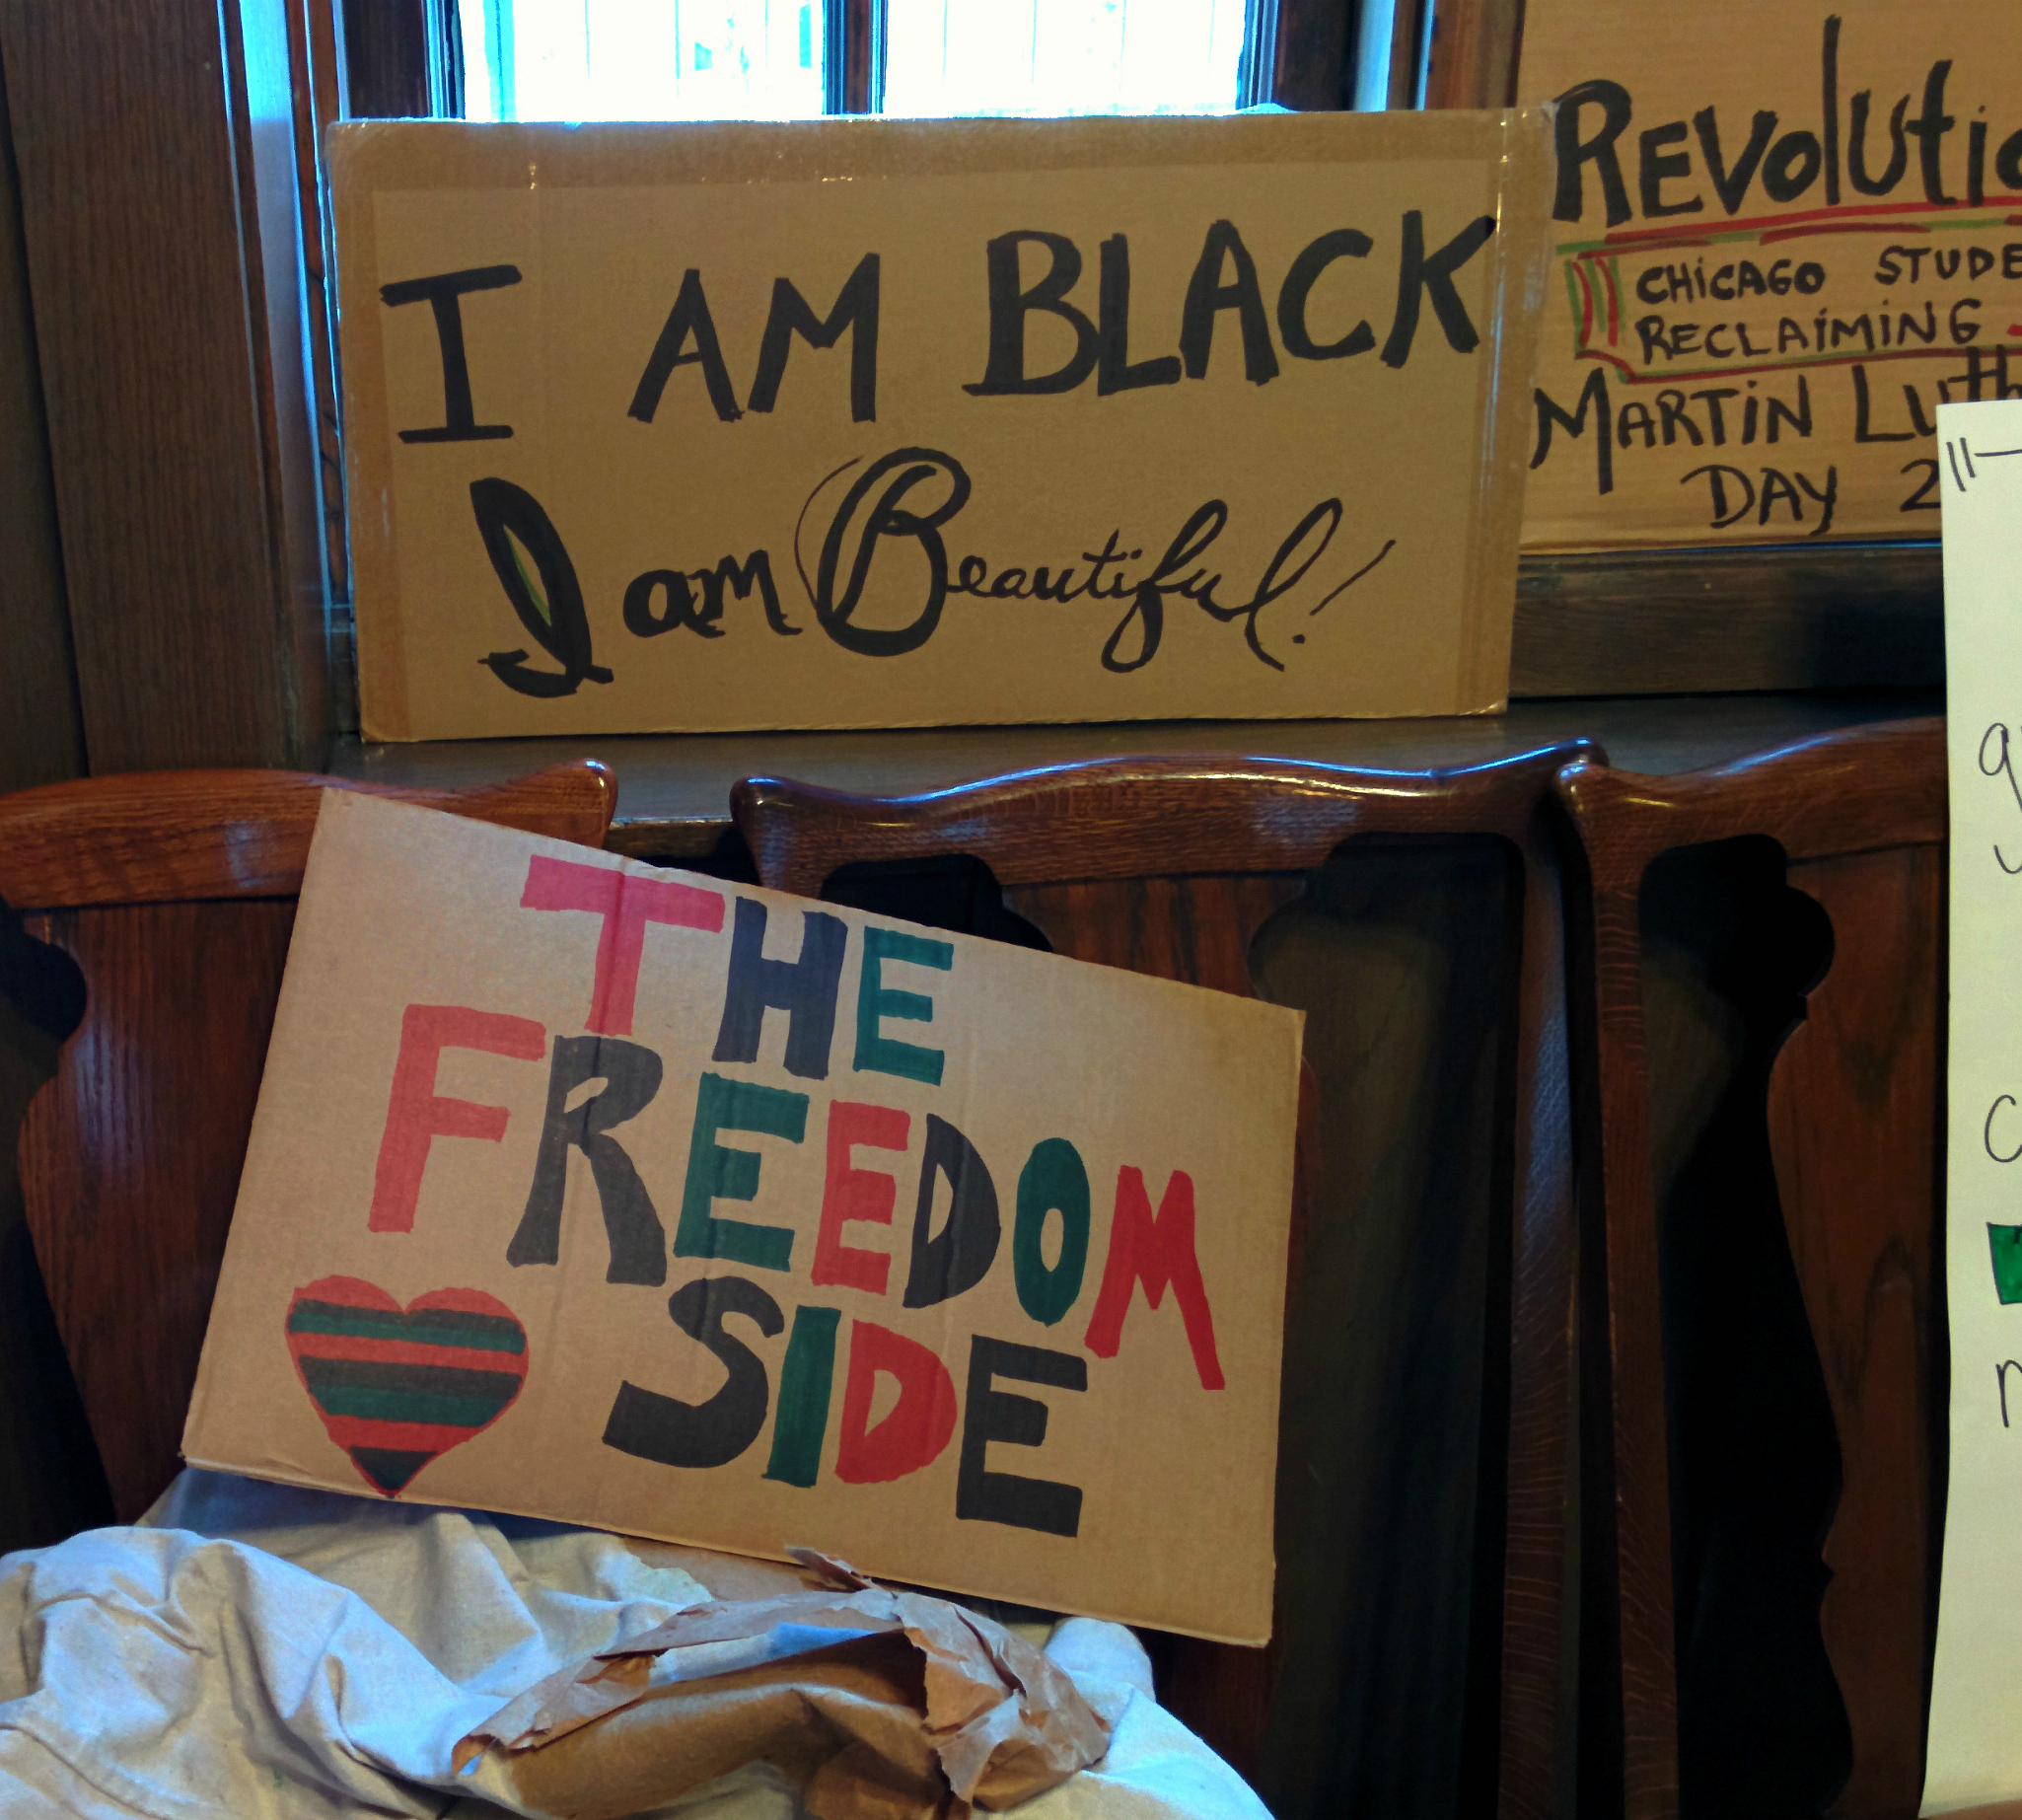 I AM BLACK
I am Beautiful!
REVOLUTIO
CHICAGO STUDE
RECLAIMING
MARTIN LUTH
DAY 2
THE
FREEDOM
SIDE